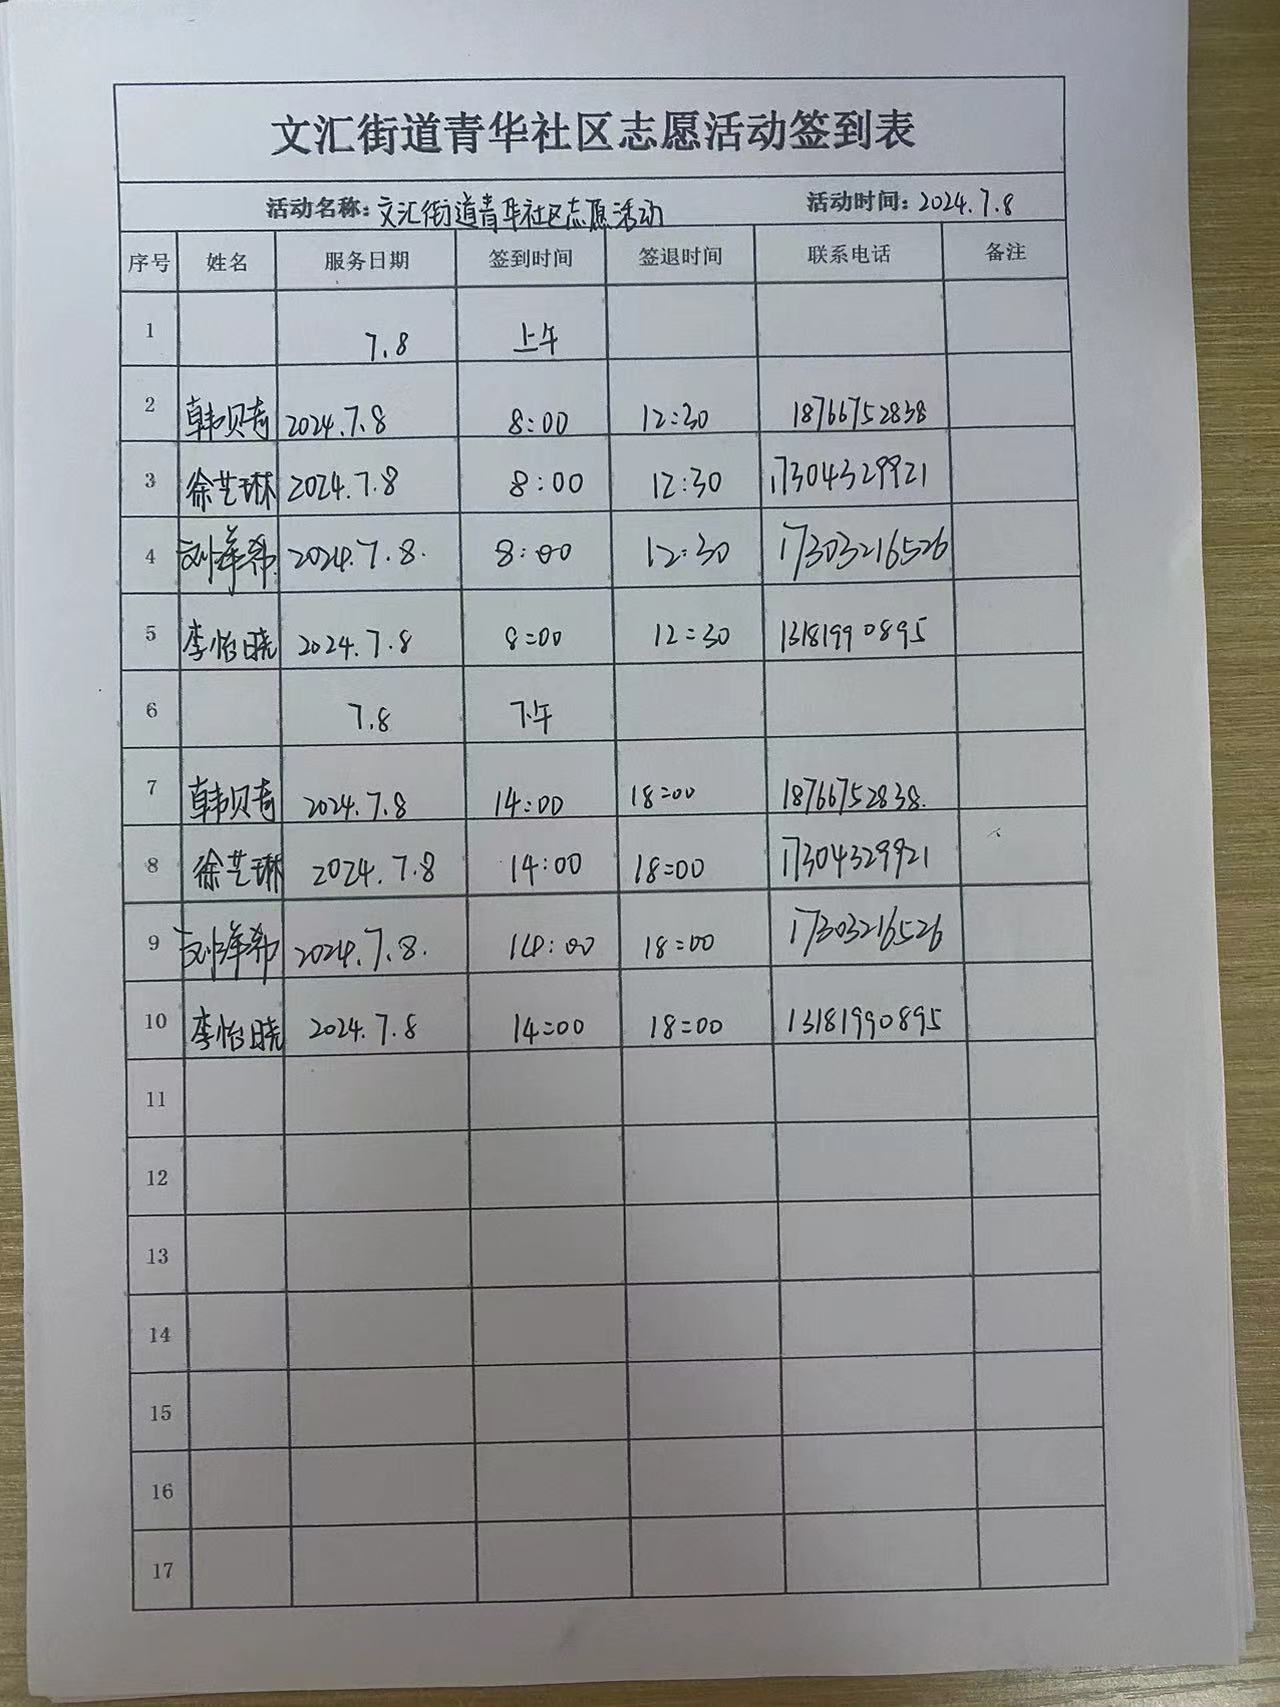 文汇街道青华社区志愿活动签到表
活动名称:文汇街道青华社区志愿活动 活动时间:2024.7.8
序号 姓名 服务日期 签到时间 签退时间 联系电话 备注
1 7.8 上午
2 韩贝奇 2024.7.8 8:00 12:30 18766752838
3 徐艺琳 2024.7.8 8:00 12:30 17304329921
4 刘 希 2024.7.8. 8:00 12:30 17303216526
5 李怡晓 2024.7.8 8:00 12:30 13181990895
6 7.8 下午
7 韩贝奇 2024.7.8 14:00 18:00 18766752838.
8 徐艺琳 2024.7.8 14:00 18:00 17304329921
9 刘 希 2024.7.8. 14:00 18:00 17303216526
10 李怡晓 2024.7.8 14:00 18:00 13181990895
11
12
13
14
15
16
17